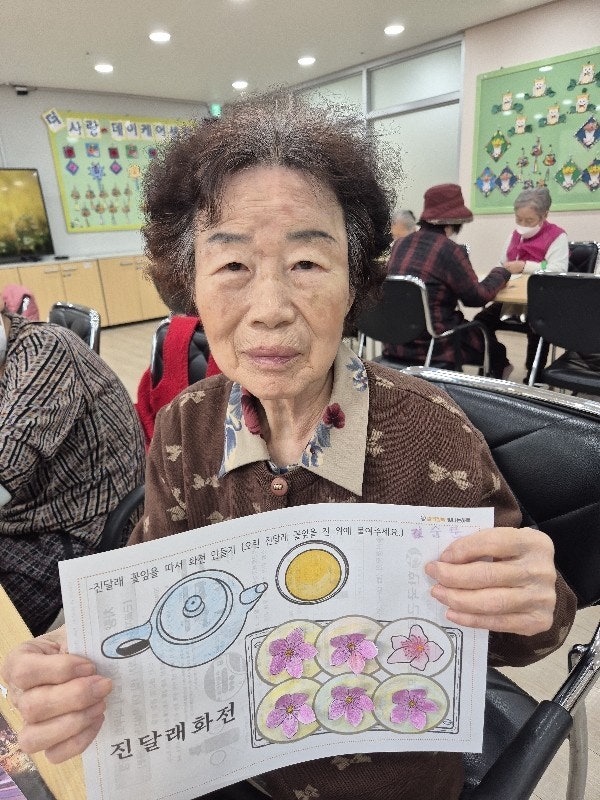 더 사랑 데이케어
진달래 꽃잎을 따서 화전 만들기 (오린 진달래 꽃잎을 전 위에 붙여주세요.)
진달래화전